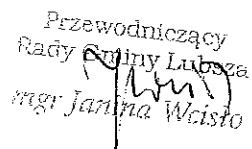 Przewodniczący
Rady Gminy Lubsza
mgr Janina Wcisło